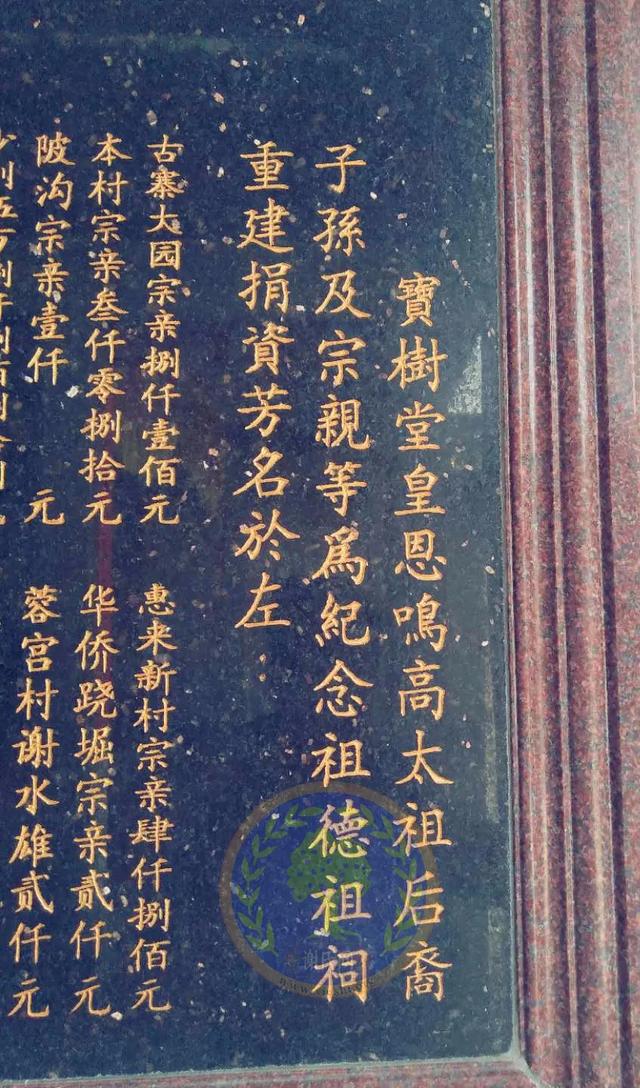 寶樹堂皇恩鳴高太祖后裔
子孫及宗親等爲紀念祖德祖祠
重建捐資芳名於左：
古寨大园宗亲捌仟壹佰元
惠来新村宗亲肆仟捌佰元
本村宗亲叁仟零捌拾元
华侨跷堀宗亲贰仟元
陂沟宗亲壹仟元
蓉宫村谢水雄贰仟元